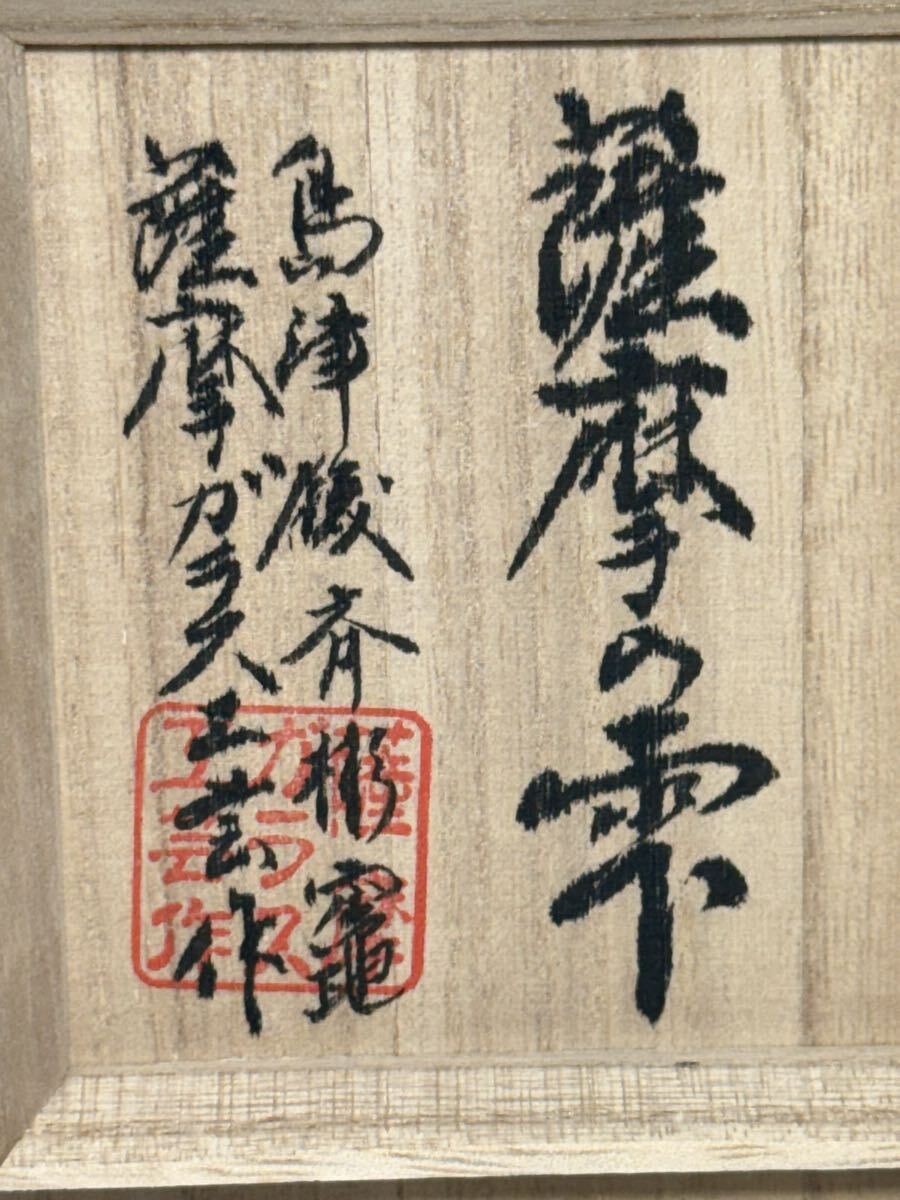 薩摩の雫
島津殿斉彬竈
薩摩ガラス工芸作
薩摩
ガラス
工芸作